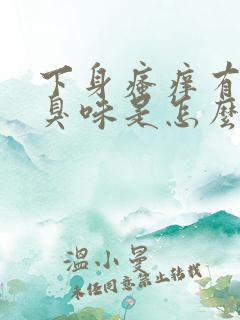 下身瘙痒有
臭味是怎麽
温小曼
未经同意禁止转载